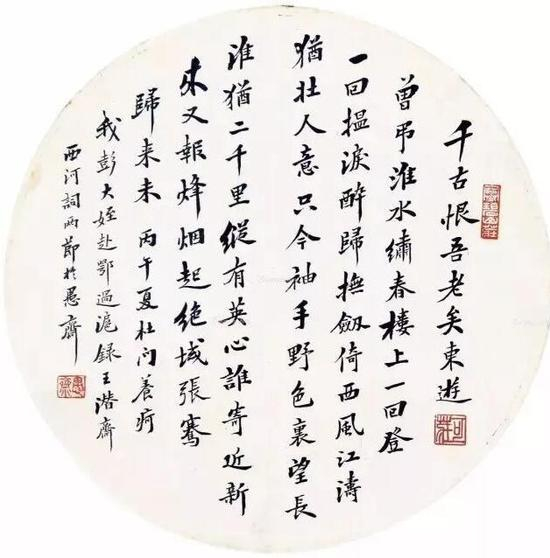 千古恨吾老矣東遊
曾弔淮水繡春樓上一回登
一回搵淚醉歸撫劔倚西風江濤
猶壯人意只今袖手野色裏望長
淮猶二千里縱有英心誰寄近新
来又報烽烟起絶域張騫
歸来未 丙午夏杜门養疴
我彭大姪赴鄂過滬録王潛齋
西河詞兩節於愚齋
愚齋